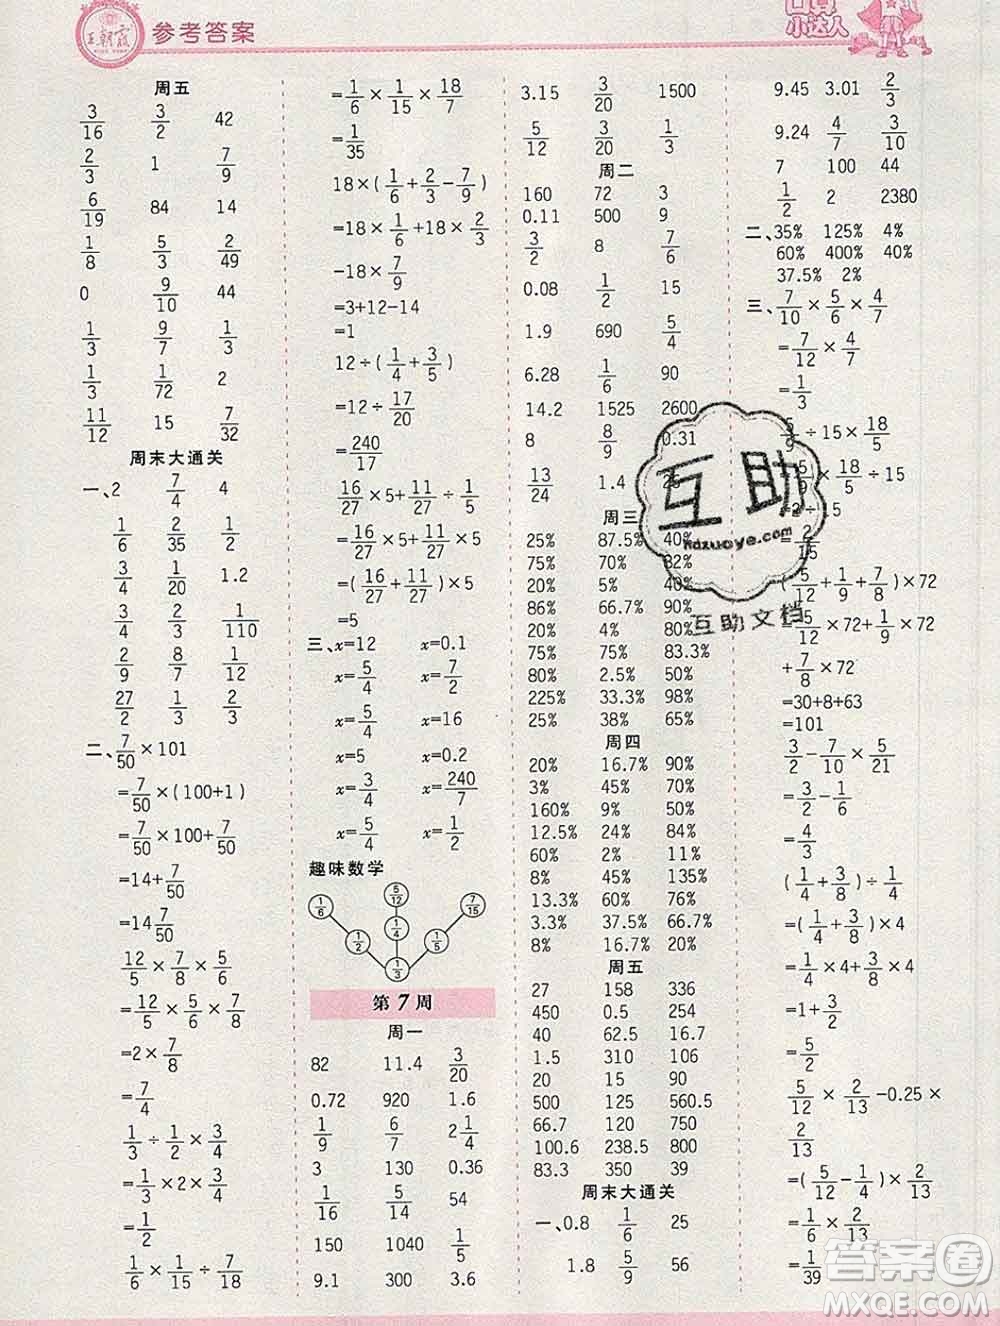 王朝霞 参考答案
口算
小达人
周五
3/16 3/2 42
2/3 1 7/9
6/19 84 14
1/8 5/3 2/49
0 9/10 44
1/3 9/7 1/3
1/3 1/72 2
11/12 15 7/32
周末大通关
一、2 7/4 4
1/6 2/35 1/2
3/4 1/20 1.2
3/4 2/3 1/110
2/3 8/7 1/3
27/2 2/3 2/3
二、7/50×101
=7/50×(100+1)
=7/50×100+7/50
=14+7/50
=14 7/50
12/5×7/8×5/6
=12/5×5/6×7/8
=2×7/8
=7/4
1/3÷1/2×3/4
=1/3×2×3/4
=1/2
1/6×1/15÷7/18
=1/6×1/15×18/7
=1/35
18×(1/6+2/3-7/9)
=18×1/6+18×2/3
-18×7/9
=3+12-14
=1
12÷(1/4+3/5)
=12÷17/20
=240/17
16/27×5+11/27÷1/5
=16/27×5+11/27×5
=(16/27+11/27)×5
=5
三、x=12 x=0.1
x=5/4 x=4/7
x=5/4 x=16
x=5 x=0.2
x=3/4 x=240/7
x=5/4 x=1/2
趣味数学
1/6 5/12 7/15
1/2 1/4 1/5
1/3
第7周
周一
82 11.4 3/20
0.72 920 1.6
1/9 6/7 2 1/4
3 130 0.36
1/16 5/14 54
150 1040 1/5
9.1 300 3.6
3.15 3/20 1500
5/12 3/20 1/3
周二
160 72 3
0.11 500 9
3/2 8 7/6
0.08 1/2 15
1.9 690 5/4
6.28 1/6 90
14.2 1525 2600
8 8/9 0.31
13/24 1.4 25
周三
25% 87.5% 40%
70% 75% 32%
20% 5% 40%
86% 66.7% 90%
20% 4% 80%
75% 75% 83.3%
80% 2.5% 58%
225% 33.3% 98%
25% 38% 65%
周四
20% 16.7% 90%
3% 45% 70%
160% 9% 50%
12.5% 24% 84%
60% 2% 22%
8% 45% 135%
13.3% 60% 76%
3.3% 37.5% 66.7%
8% 16.7% 20%
周五
27 158 336
450 0.5 254
40 62.5 16.7
1.5 310 564
20 15 90
500 125 560.5
66.7 120 750
100.6 238.5 800
83.3 350 39
周末大通关
一、0.8 1/6 25
1.8 5/9 56
9.45 3.01 2/3
9.24 4/7 1/9
7 100 44
1/2 2 2380
二、35% 125% 4%
60% 400% 40%
37.5% 2%
三、7/10×5/6×4/7
=7/12×4/7
=1/3
5/9÷15×18/5
=5/9×18/5÷15
=2÷15
=2/15
(5/12+1/9+7/8)×72
=5/12×72+1/9×72
+7/8×72
=30+8+63
=101
3/2-7/10×5/21
=3/2-1/6
=4/3
(1/4+3/8)÷1/4
=(1/4+3/8)×4
=1/4×4+3/8×4
=1+3/2
=5/2
5/12×2/13-0.25×
2/13
=(5/12-1/4)×2/13
=1/6×2/13
=1/39
互助
Hdzuoye.com
互助文档
答案圈
MXQE.COM